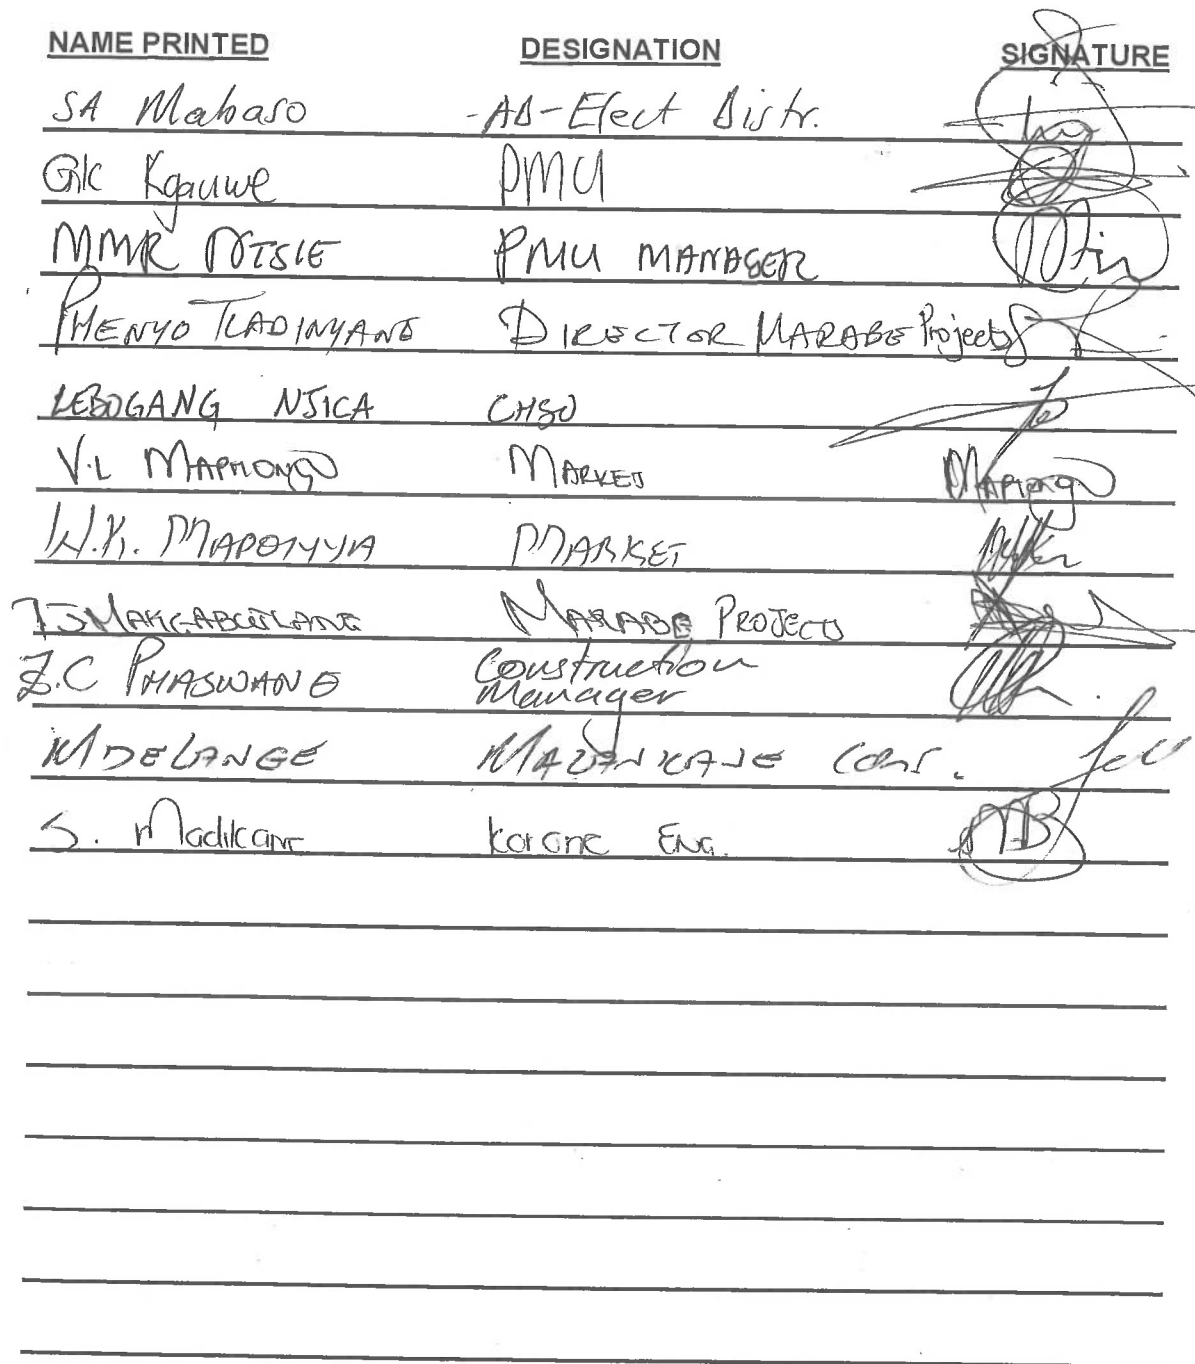 NAME PRINTED DESIGNATION SIGNATURE
SA Mabaso -AD-Elect Distr.
GK Kgauwe PMU
MMR NTSIE PMU MANAGER
PHENYO TLADINYANE DIRECTOR MARABE Projects
LEBOGANG NJICA CHSO
V.L MAPHONGO MARKET Maphongo
W.K. MAPONYYA MARKET
TJ MARABE PROJECTS
Z.C PHASWANE Construction
Manager
M DE LANGE CONS.
S. Madikane Korone ENG. MB